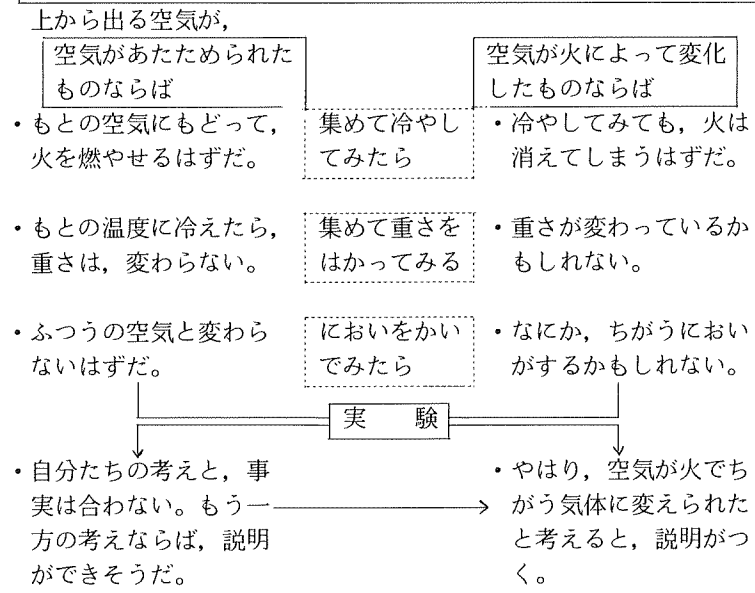 上から出る空気が，
空気があたためられた
ものならば
空気が火によって変化
したものならば
・もとの空気にもどって，
火を燃やせるはずだ。
集めて冷やし
てみたら
・冷やしてみても，火は
消えてしまうはずだ。
・もとの温度に冷えたら，
重さは，変わらない。
集めて重さを
はかってみる
・重さが変わっているか
もしれない。
・ふつうの空気と変わら
ないはずだ。
においをかい
でみたら
・なにか，ちがうにおい
がするかもしれない。
実　験
・自分たちの考えと，事
実は合わない。もう一
方の考えならば，説明
ができそうだ。
・やはり，空気が火でち
がう気体に変えられた
と考えると，説明がつ
く。